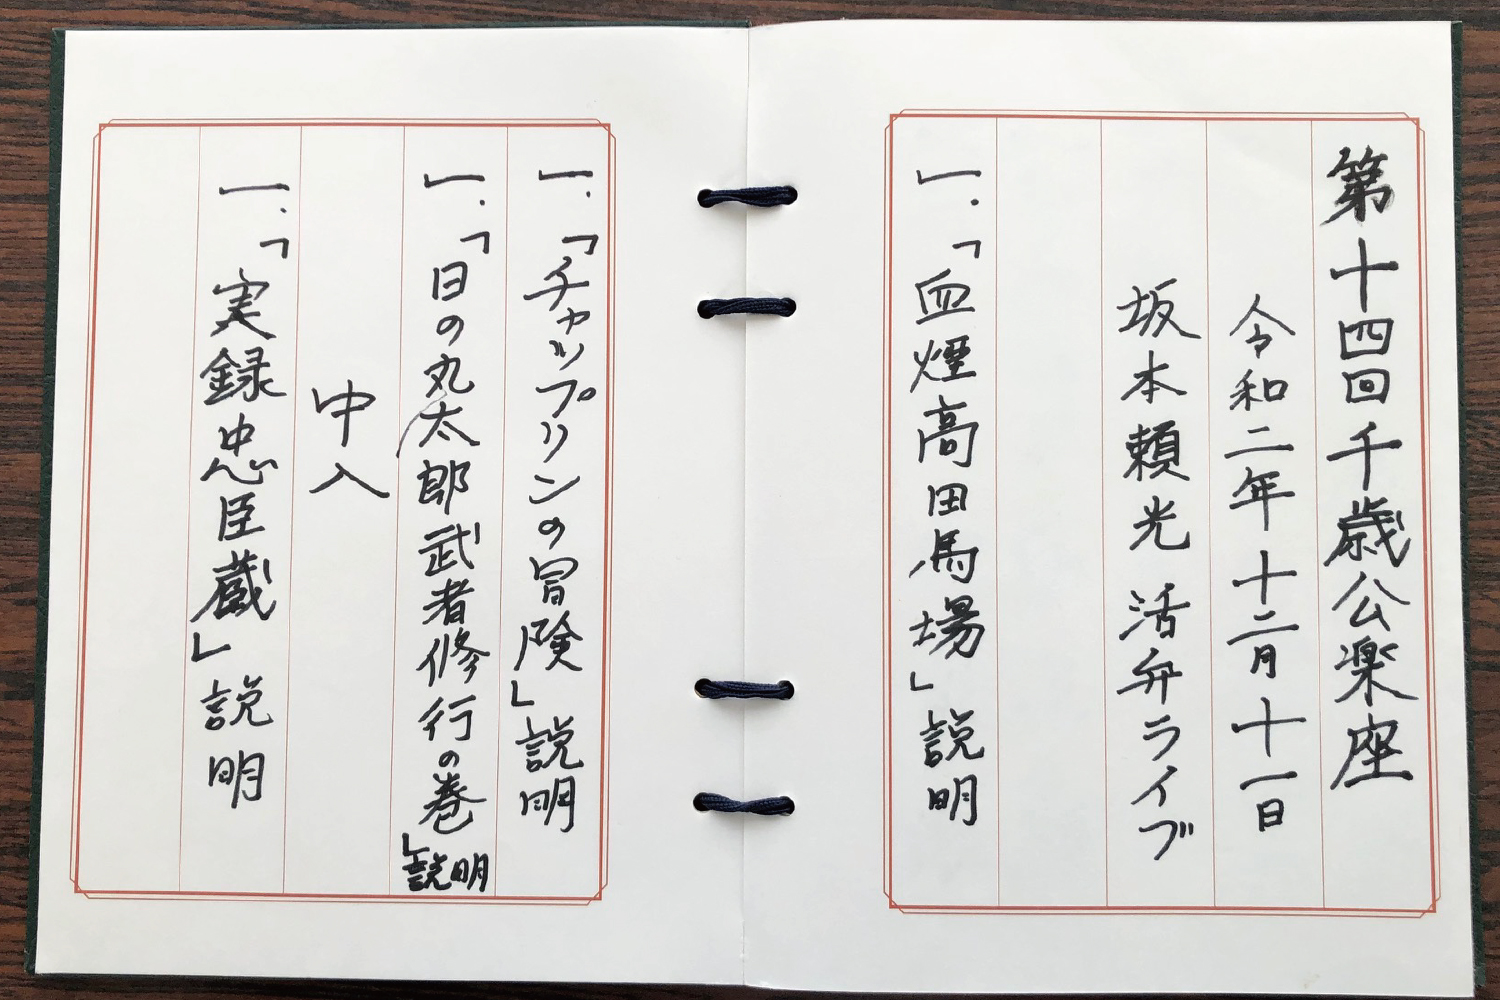 第十四回千歳公楽座
令和二年十二月十一日
坂本頼光 活弁ライブ
一.「血煙高田馬場」説明
一.「チャップリンの冒険」説明
一.「日の丸太郎武者修行の巻」説明
中入
一.「実録忠臣蔵」説明